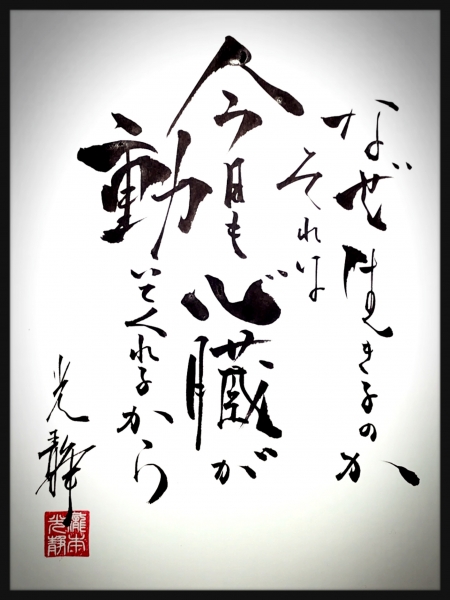 なぜ生きるのか
それは
今日も心臓が
動いてくれるから
光静
瀧本
光静